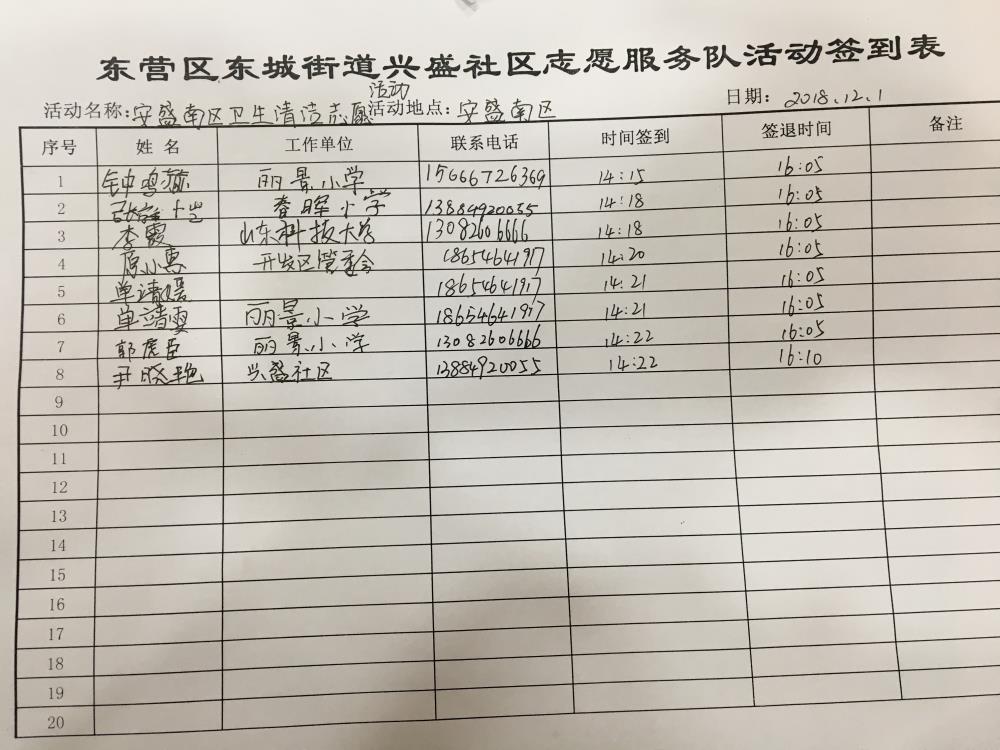 东营区东城街道兴盛社区志愿服务队活动签到表
活动名称：安盛南区卫生清洁志愿活动 活动地点：安盛南区 日期：2018.12.1
序号 姓名 工作单位 联系电话 时间签到 签退时间 备注
1 钟鸣 丽景小学 15666726369 14:15 16:05
2 春晖小学 13884920055 14:18 16:05
3 李霞 山东科技大学 13082606666 14:18 16:05
4 原小惠 开发区管委会 18654641917 14:20 16:05
5 单靖媛 18654641917 14:21 16:05
6 单靖雯 丽景小学 18654641917 14:21 16:05
7 郭虎臣 丽景小学 13082606666 14:22 16:05
8 尹晓艳 兴盛社区 13884920055 14:22 16:10
9
10
11
12
13
14
15
16
17
18
19
20